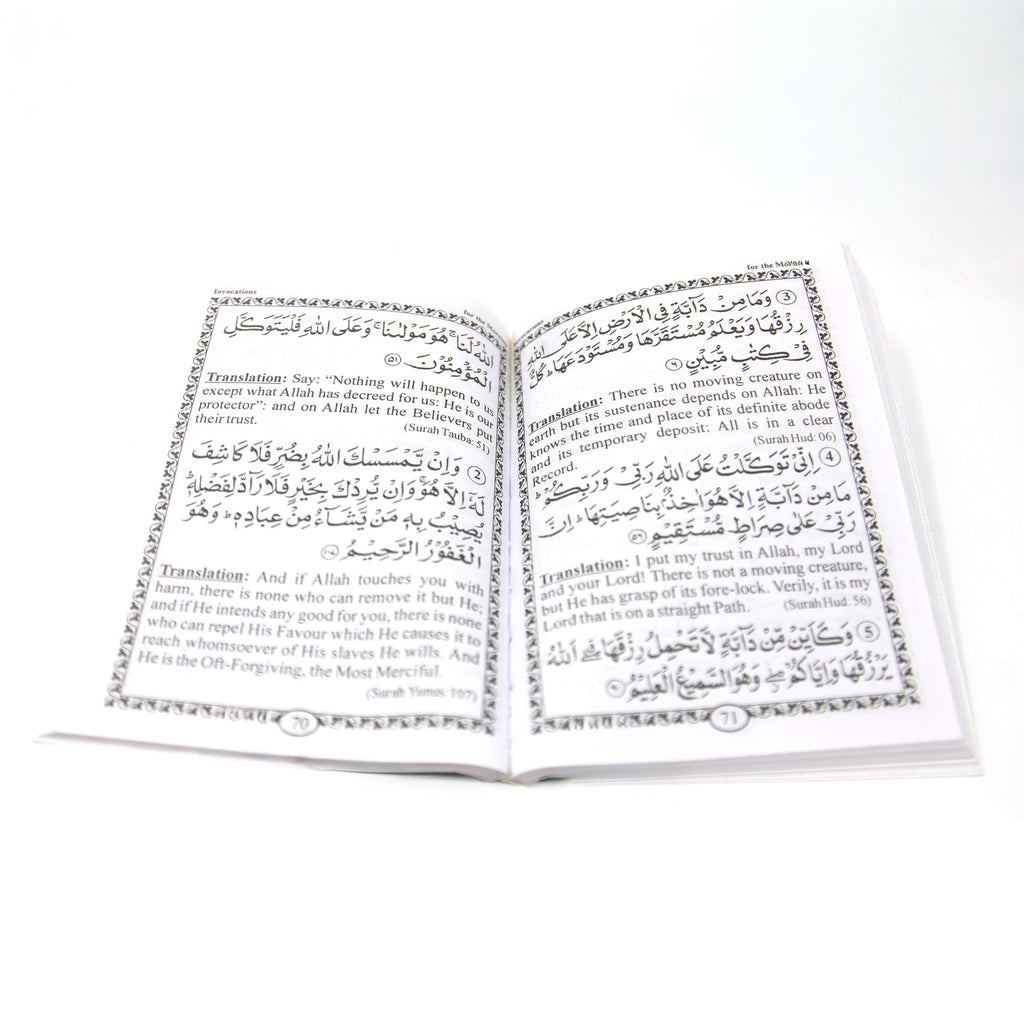 Invocations
for the
اللهُ لَنَا ۚ هُوَ مَوْلٰىنَا ۚ وَعَلَى اللهِ فَلْيَتَوَكَّلِ
الْمُؤْمِنُوْنَ ﴿٥١﴾
Translation: Say: “Nothing will happen to us
except what Allah has decreed for us: He is our
protector”: and on Allah let the Believers put
their trust.
(Surah Tauba: 51)
② وَاِنْ يَّمْسَسْكَ اللهُ بِضُرٍّ فَلَا كَاشِفَ
لَهٗٓ اِلَّا هُوَ ۚ وَاِنْ يُّرِدْكَ بِخَيْرٍ فَلَا رَآدَّ لِفَضْلِهٖ ؕ
يُصِيْبُ بِهٖ مَنْ يَّشَآءُ مِنْ عِبَادِهٖ ؕ وَهُوَ
الْغَفُوْرُ الرَّحِيْمُ ﴿١٠٧﴾
Translation: And if Allah touches you with
harm, there is none who can remove it but He;
and if He intends any good for you, there is none
who can repel His Favour which He causes it to
reach whomsoever of His slaves He wills. And
He is the Oft-Forgiving, the Most Merciful.
(Surah Yunus: 107)
70
for the
③ وَمَا مِنْ دَآبَّةٍ فِي الْاَرْضِ اِلَّا عَلَى اللهِ
رِزْقُهَا وَيَعْلَمُ مُسْتَقَرَّهَا وَمُسْتَوْدَعَهَا ؕ كُلٌّ
فِيْ كِتٰبٍ مُّبِيْنٍ ﴿٦﴾
Translation: There is no moving creature on
earth but its sustenance depends on Allah: He
knows the time and place of its definite abode
and its temporary deposit: All is in a clear
Record.
(Surah Hud: 06)
④ اِنِّيْ تَوَكَّلْتُ عَلَى اللهِ رَبِّيْ وَرَبِّكُمْ ؕ
مَا مِنْ دَآبَّةٍ اِلَّا هُوَ اٰخِذٌۢ بِنَاصِيَتِهَا ؕ اِنَّ
رَبِّيْ عَلٰى صِرَاطٍ مُّسْتَقِيْمٍ ﴿٥٦﴾
Translation: I put my trust in Allah, my Lord
and your Lord! There is not a moving creature,
but He has grasp of its fore-lock. Verily, it is my
Lord that is on a straight Path.
(Surah Hud: 56)
⑤ وَكَاَيِّنْ مِّنْ دَآبَّةٍ لَّا تَحْمِلُ رِزْقَهَا ۖ اَللهُ
يَرْزُقُهَا وَاِيَّاكُمْ ۖ وَهُوَ السَّمِيْعُ الْعَلِيْمُ ﴿٦٠﴾
71